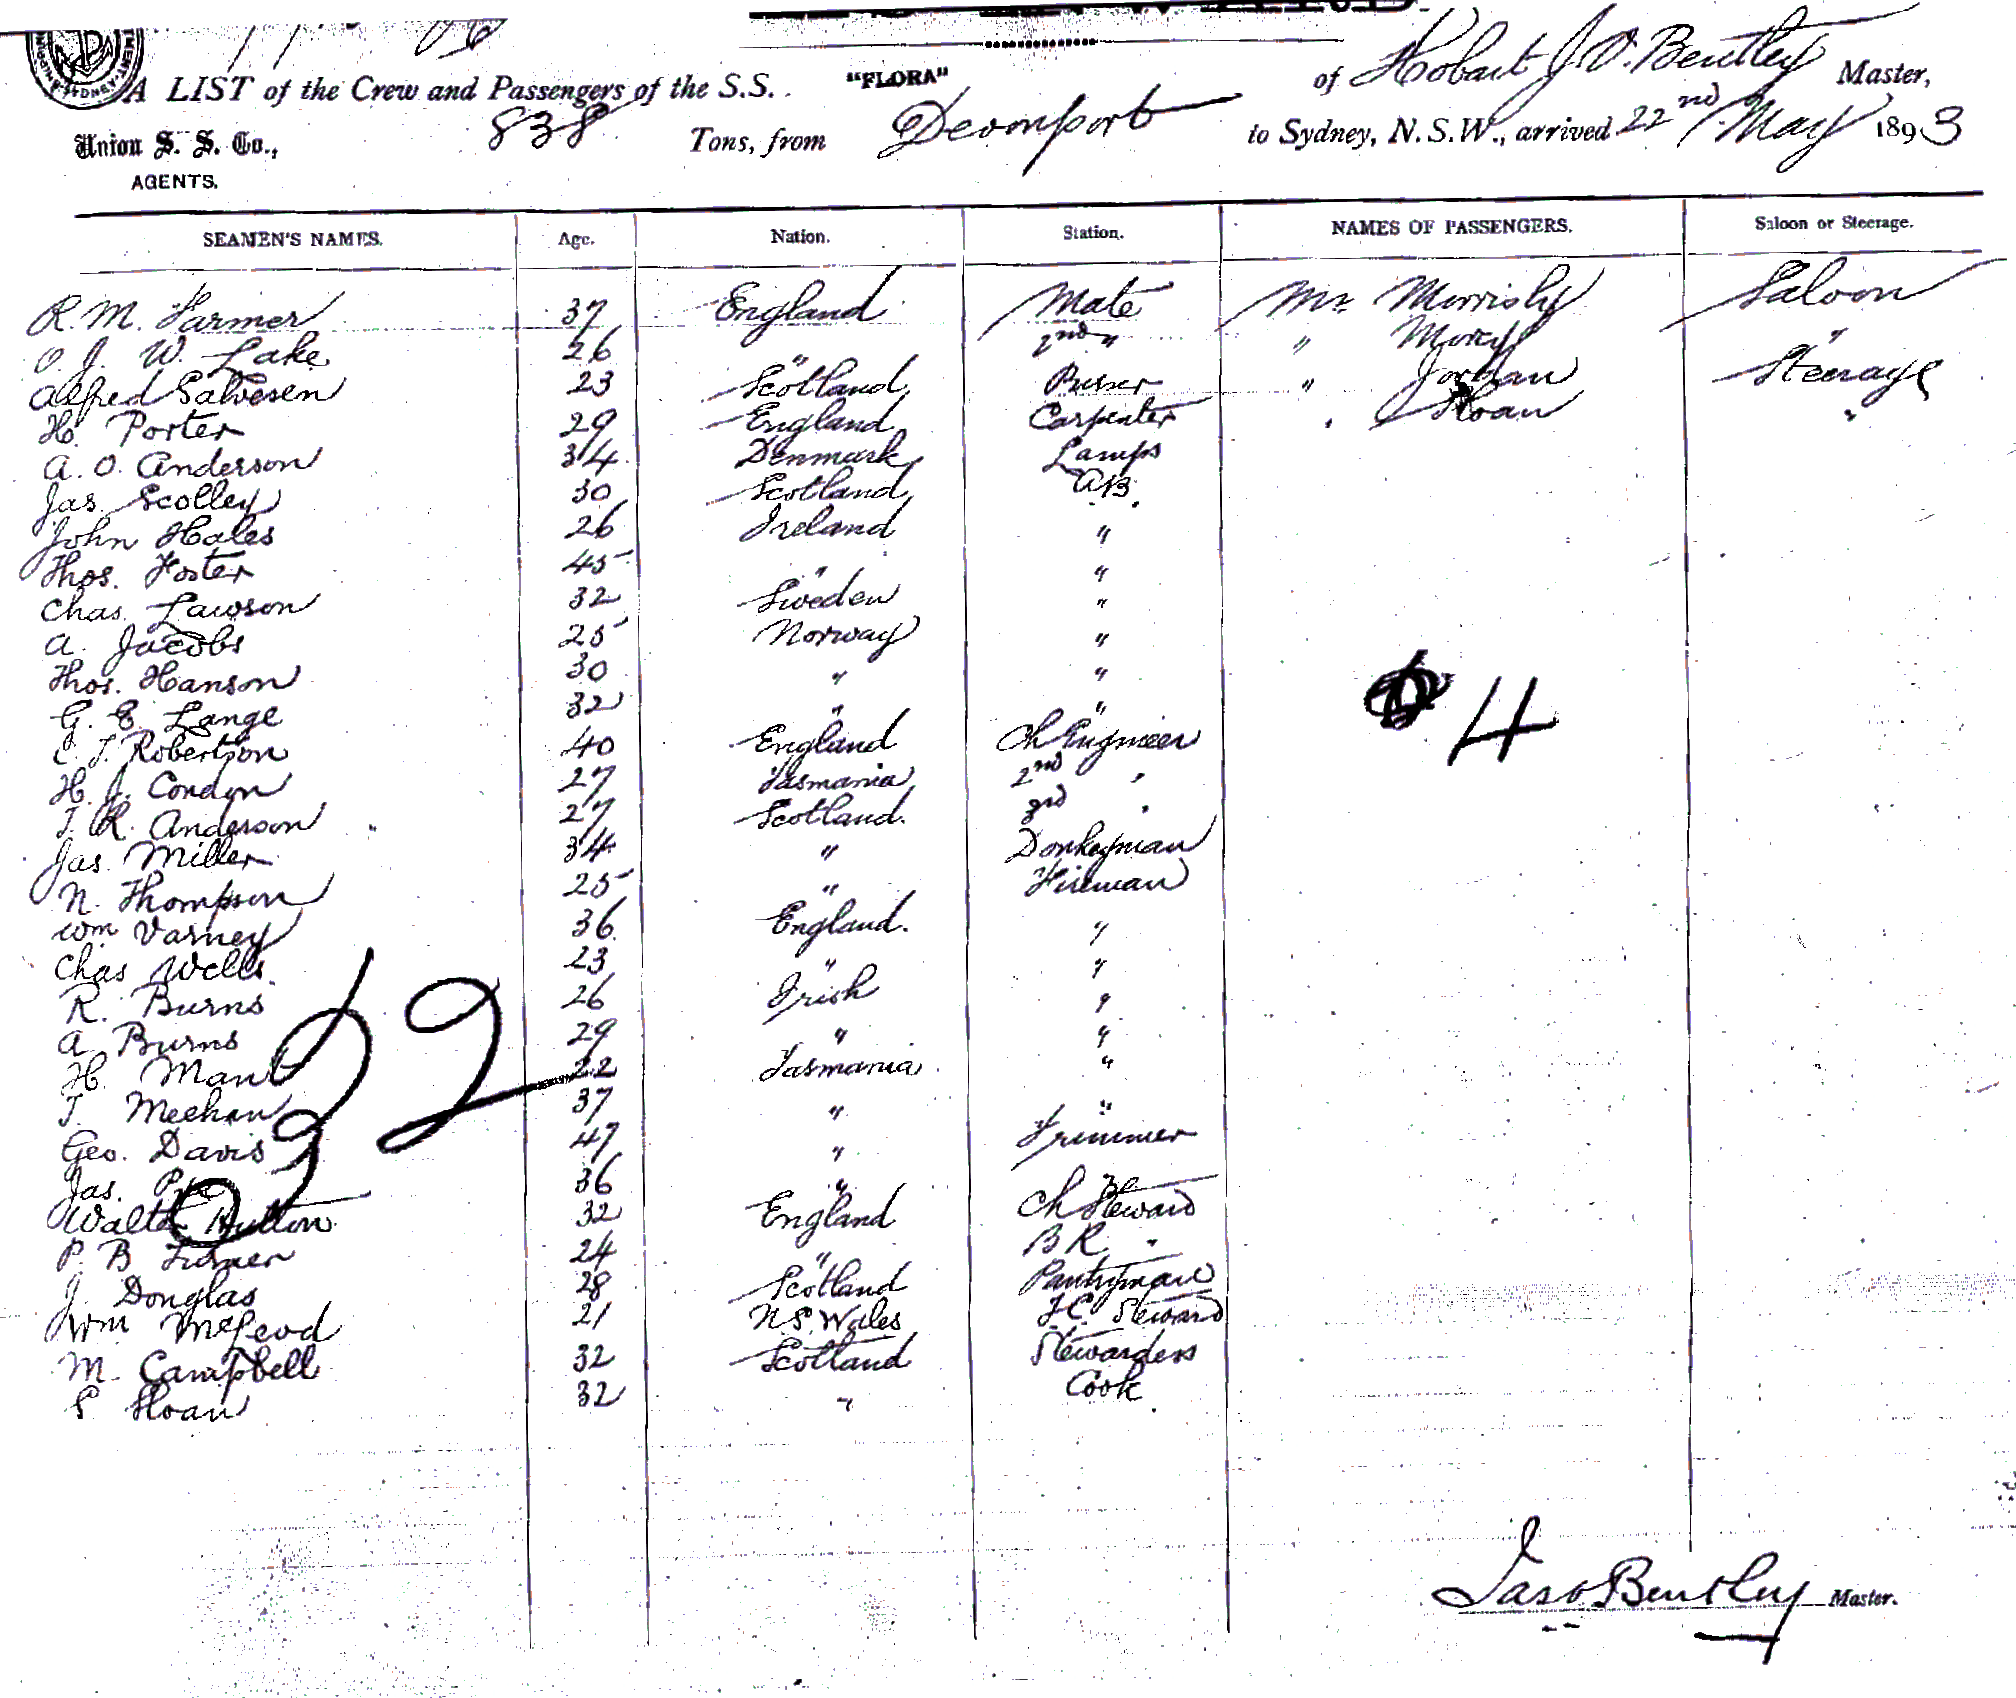 A LIST of the Crew and Passengers of the S.S. "FLORA" of Hobart J. O. Bentley Master,
Union S. S. Co., 838 Tons, from Devonport to Sydney, N.S.W., arrived 22nd May 1893
AGENTS.
SEAMEN'S NAMES. Age. Nation. Station. NAMES OF PASSENGERS. Saloon or Steerage.
R. M. Farmer 37 England Mate Mr Morrisby Saloon
O. J. W. Lake 26 " 2nd " " "
Alfred Salvesen 23 Scotland Purser " Jordan Steerage
H. Porter 29 England Carpenter " Sloan "
A. O. Anderson 34 Denmark Lamps
Jas. Scolley 30 Scotland AB
John Hales 26 Ireland "
Thos. Foster 45 " "
Chas. Lawson 32 Sweden "
A. Jacobs 25 Norway "
Thos. Hanson 30 " "
G. E. Lange 32 " "
C. J. Robertson 40 England Ch Engineer
H. J. Condon 27 Tasmania 2nd "
J. R. Anderson 27 Scotland. 3rd "
Jas. Miller 34 " Donkeyman
N. Thompson 25 " Fireman
Wm Varney 36 England. "
Chas Wells. 23 " "
R. Burns 26 Irish "
A Burns 29 " "
H. Mant 22 Tasmania "
J. Meehan 37 " "
Geo. Davis 47 " Trimmer
Jas. Pye 36 " "
Walter Hutton 32 England Ch Steward
P. B Turner 24 " B R "
J. Douglas 28 Scotland Pantryman
Wm McLeod 21 N.S. Wales F.C. Steward
M. Campbell 32 Scotland Stewardess
S Sloan 32 " Cook
4
32
Jas O Bentley Master.